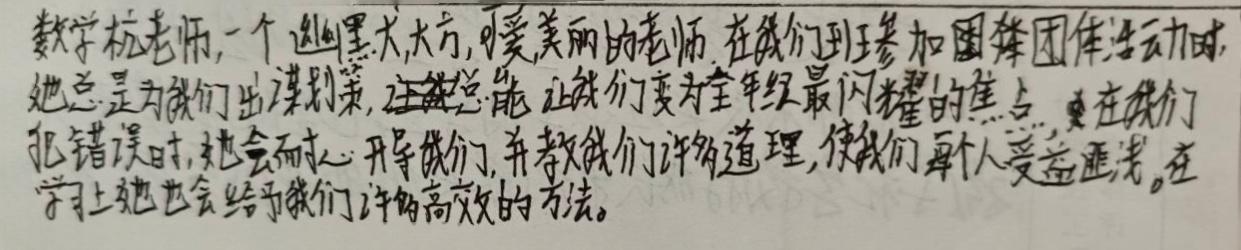 数学杭老师,一个幽默,大方,可爱,美丽的老师.在我们班参加团体活动时,
她总是为我们出谋划策,总能让我们变为全年级最闪耀的焦点,在我们
犯错误时,她会耐心开导我们,并教我们许多道理,使我们每个人受益匪浅。在
学习上她也会给予我们许多高效的方法。